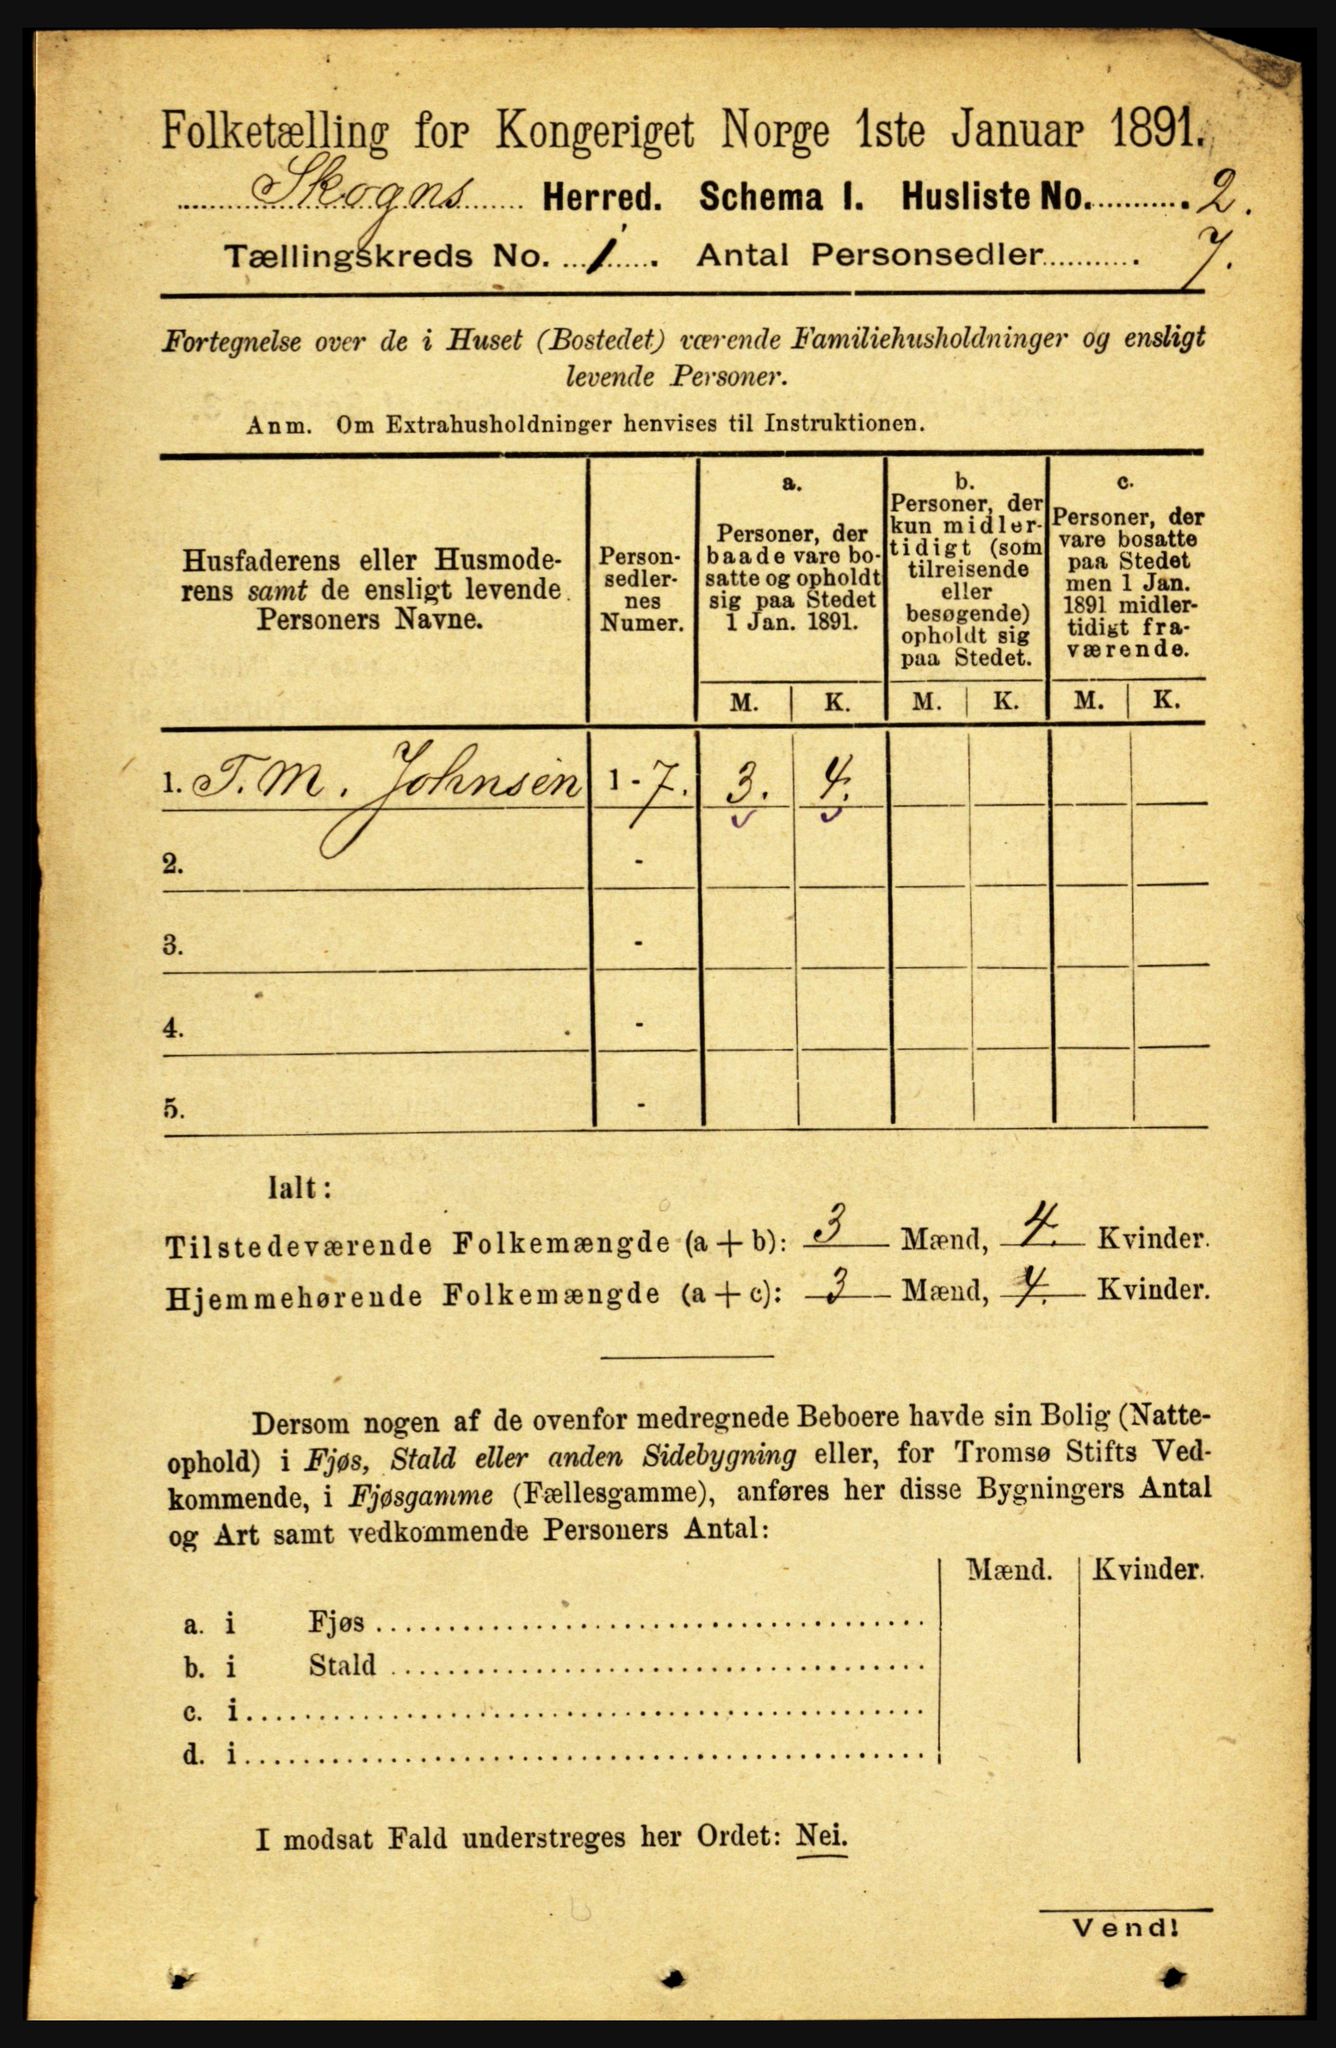 Folketælling for Kongeriget Norge 1ste Januar 1891.
Skogns Herred. Schema I. Husliste No. 2.
Tællingskreds No. 1. Antal Personsedler 7.
Fortegnelse over de i Huset (Bostedet) værende Familiehusholdninger og ensligt
levende Personer.
Anm. Om Extrahusholdninger henvises til Instruktionen.
Husfaderens eller Husmode-
rens samt de ensligt levende
Personers Navne.
Person-
sedler-
nes
Numer.
a.
Personer, der
baade vare bo-
satte og opholdt
sig paa Stedet
1 Jan. 1891.
b.
Personer, der
kun midler-
tidigt (som
tilreisende
eller
besøgende)
opholdt sig
paa Stedet.
c.
Personer, der
vare bosatte
paa Stedet
men 1 Jan.
1891 midler-
tidigt fra-
værende.
M. K. M. K. M. K.
1. T. M. Johnsen 1 - 7. 3. 4.
2. -
3. -
4. -
5. -
Ialt:
Tilstedeværende Folkemængde (a + b): 3 Mænd, 4. Kvinder.
Hjemmehørende Folkemængde (a + c): 3 Mænd, 4. Kvinder.
Dersom nogen af de ovenfor medregnede Beboere havde sin Bolig (Natte-
ophold) i Fjøs, Stald eller anden Sidebygning eller, for Tromsø Stifts Ved-
kommende, i Fjøsgamme (Fællesgamme), anføres her disse Bygningers Antal
og Art samt vedkommende Personers Antal:
Mænd. Kvinder.
a. i Fjøs
b. i Stald
c. i
d. i
I modsat Fald understreges her Ordet: Nei.
Vend!